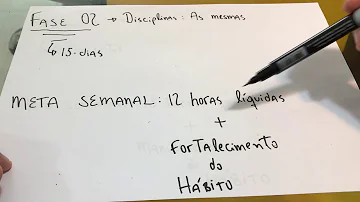 FASE 02 → Disciplinas: As mesmas
↳ 15 dias
META SEMANAL: 12 horas líquidas
+
Fortalecimento
do
HÁBITO